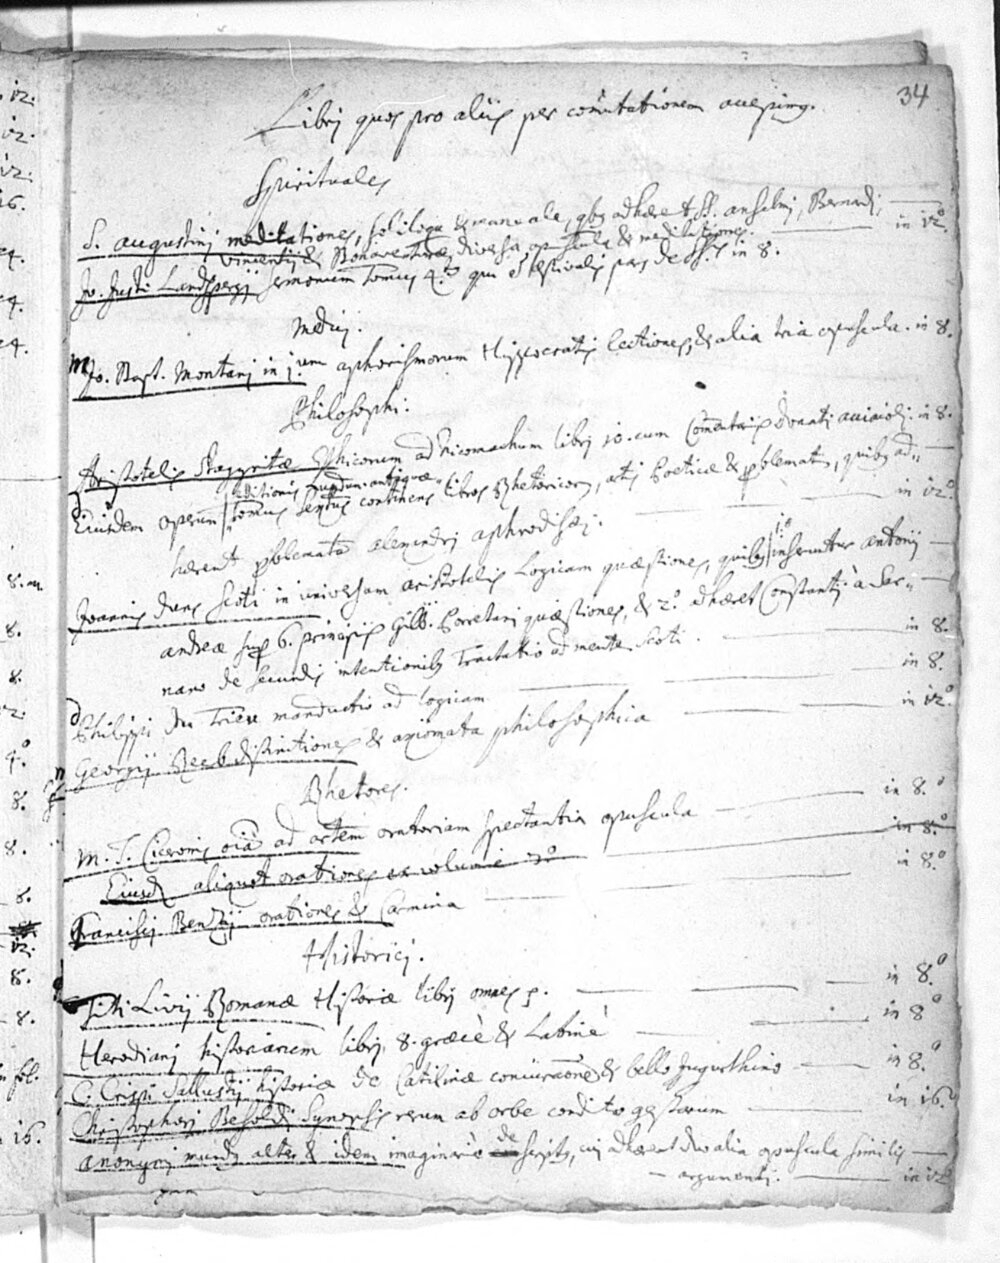 34
Librj quos pro alijs per com̃utationem accepimg.
Spirituales
S. Augustinj meditationes, soliloqia & manuale, qbg adhære͂t SS. Anselmj, Bernardj,
Vincentij & Bonaventuræ, diversa opuscula & meditationes. in 12°
Jo. Justi Landspergij sermonum tomus 4.tg quj & festivalis pars de SS.is in 8.
Medicj.
Jo. Bapt. Montanj in j.um aphorismorum Hippocratis lectiones, & alia tria opuscula. in 8.
Philosophj.
Aristotelis Stagyritæ Ethicorum ad Nicomachum librj 10. cum Com̃entarijs Donati Acciaioli. in 8.
Ejusdem operum tomus sextus continens libros Rhetoricorum, artis Poeticæ & problematu͂, quibg ad=
editionis antiquæ
hærent problemata Alexandrj Aphrodisæj. in 12°
Joannis Duns Scoti in universam Aristotelis Logicam quæstiones, quibg 1.° inseruntur Antonij
Andreæ sup 6. principijs Gilb. Porretanj quæstiones, & 2.° adhæret Constantij à Sar=
nano de secundis intentionibg tractatio ad mente͂ Scoti. in 8.
Philippi Du Trieu manductio ad logicam. in 8.
Georgij Reeb distinctiones & axiomata philosophica in 12°
Rhetores.
M. T. Ciceronis oi͂a ad artem oratoriam spectantia opuscula in 8.°
Eiusd. aliquot orationes ex volumine in 8.°
Franciscj Bencij orationes & Carmina in 8.°
Historicj.
Titi Livij Romanæ Historiæ librj omnes in 8.°
Herodianj historiarum librj 8. græcè & Latinè in 8°
C. Crispi Sallustij historiæ de Catilinæ coniuraõne & bello Jugurthino in 8.°
Christophorj Besoldj synopsis rerum ab orbe condito gestarum in 16.°
Anonymj mundg alter & idem imaginariè descriptg, cuj adhærent duo alia opuscula similis
argumentj. in 12